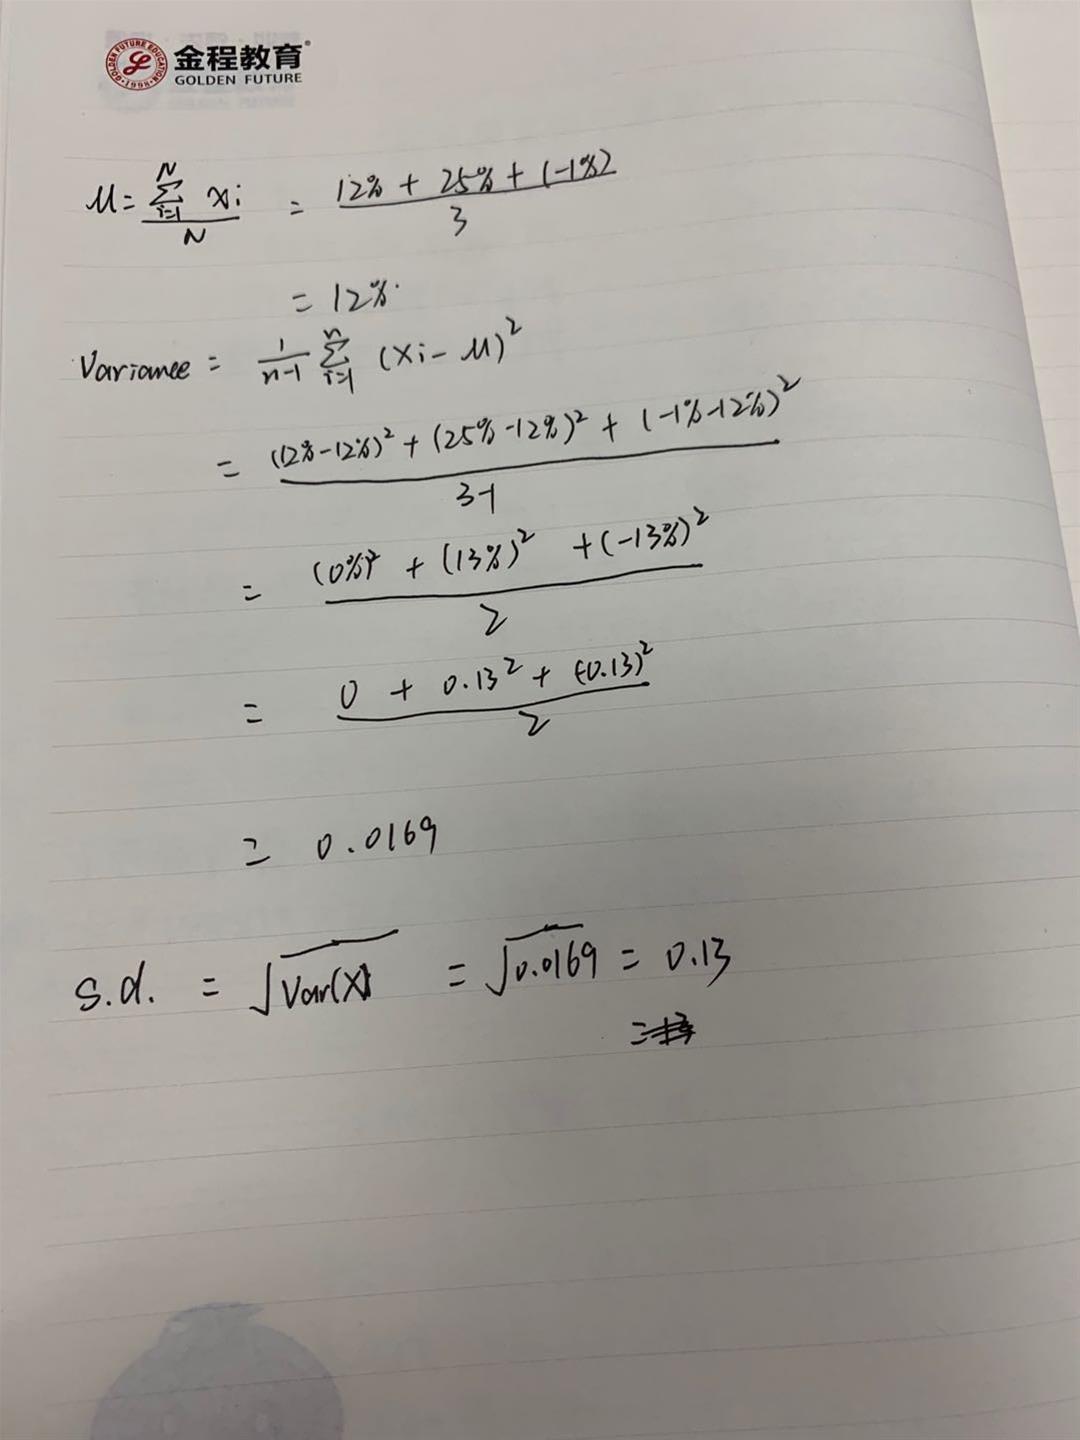 金程教育®
GOLDEN FUTURE
GOLDEN FUTURE EDUCATION · 1998 ·
μ = \frac{\sum_{i=1}^{N} xi}{N} = \frac{12% + 25% + (-1%)}{3}
= 12%.
Variance = \frac{1}{n-1} \sum_{i=1}^{n} (xi - μ)²
= \frac{(12%-12%)² + (25%-12%)² + (-1%-12%)²}{3-1}
= \frac{(0%)² + (13%)² + (-13%)²}{2}
= \frac{0 + 0.13² + (-0.13)²}{2}
= 0.0169
s.d. = √Var(X) = √0.0169 = 0.13